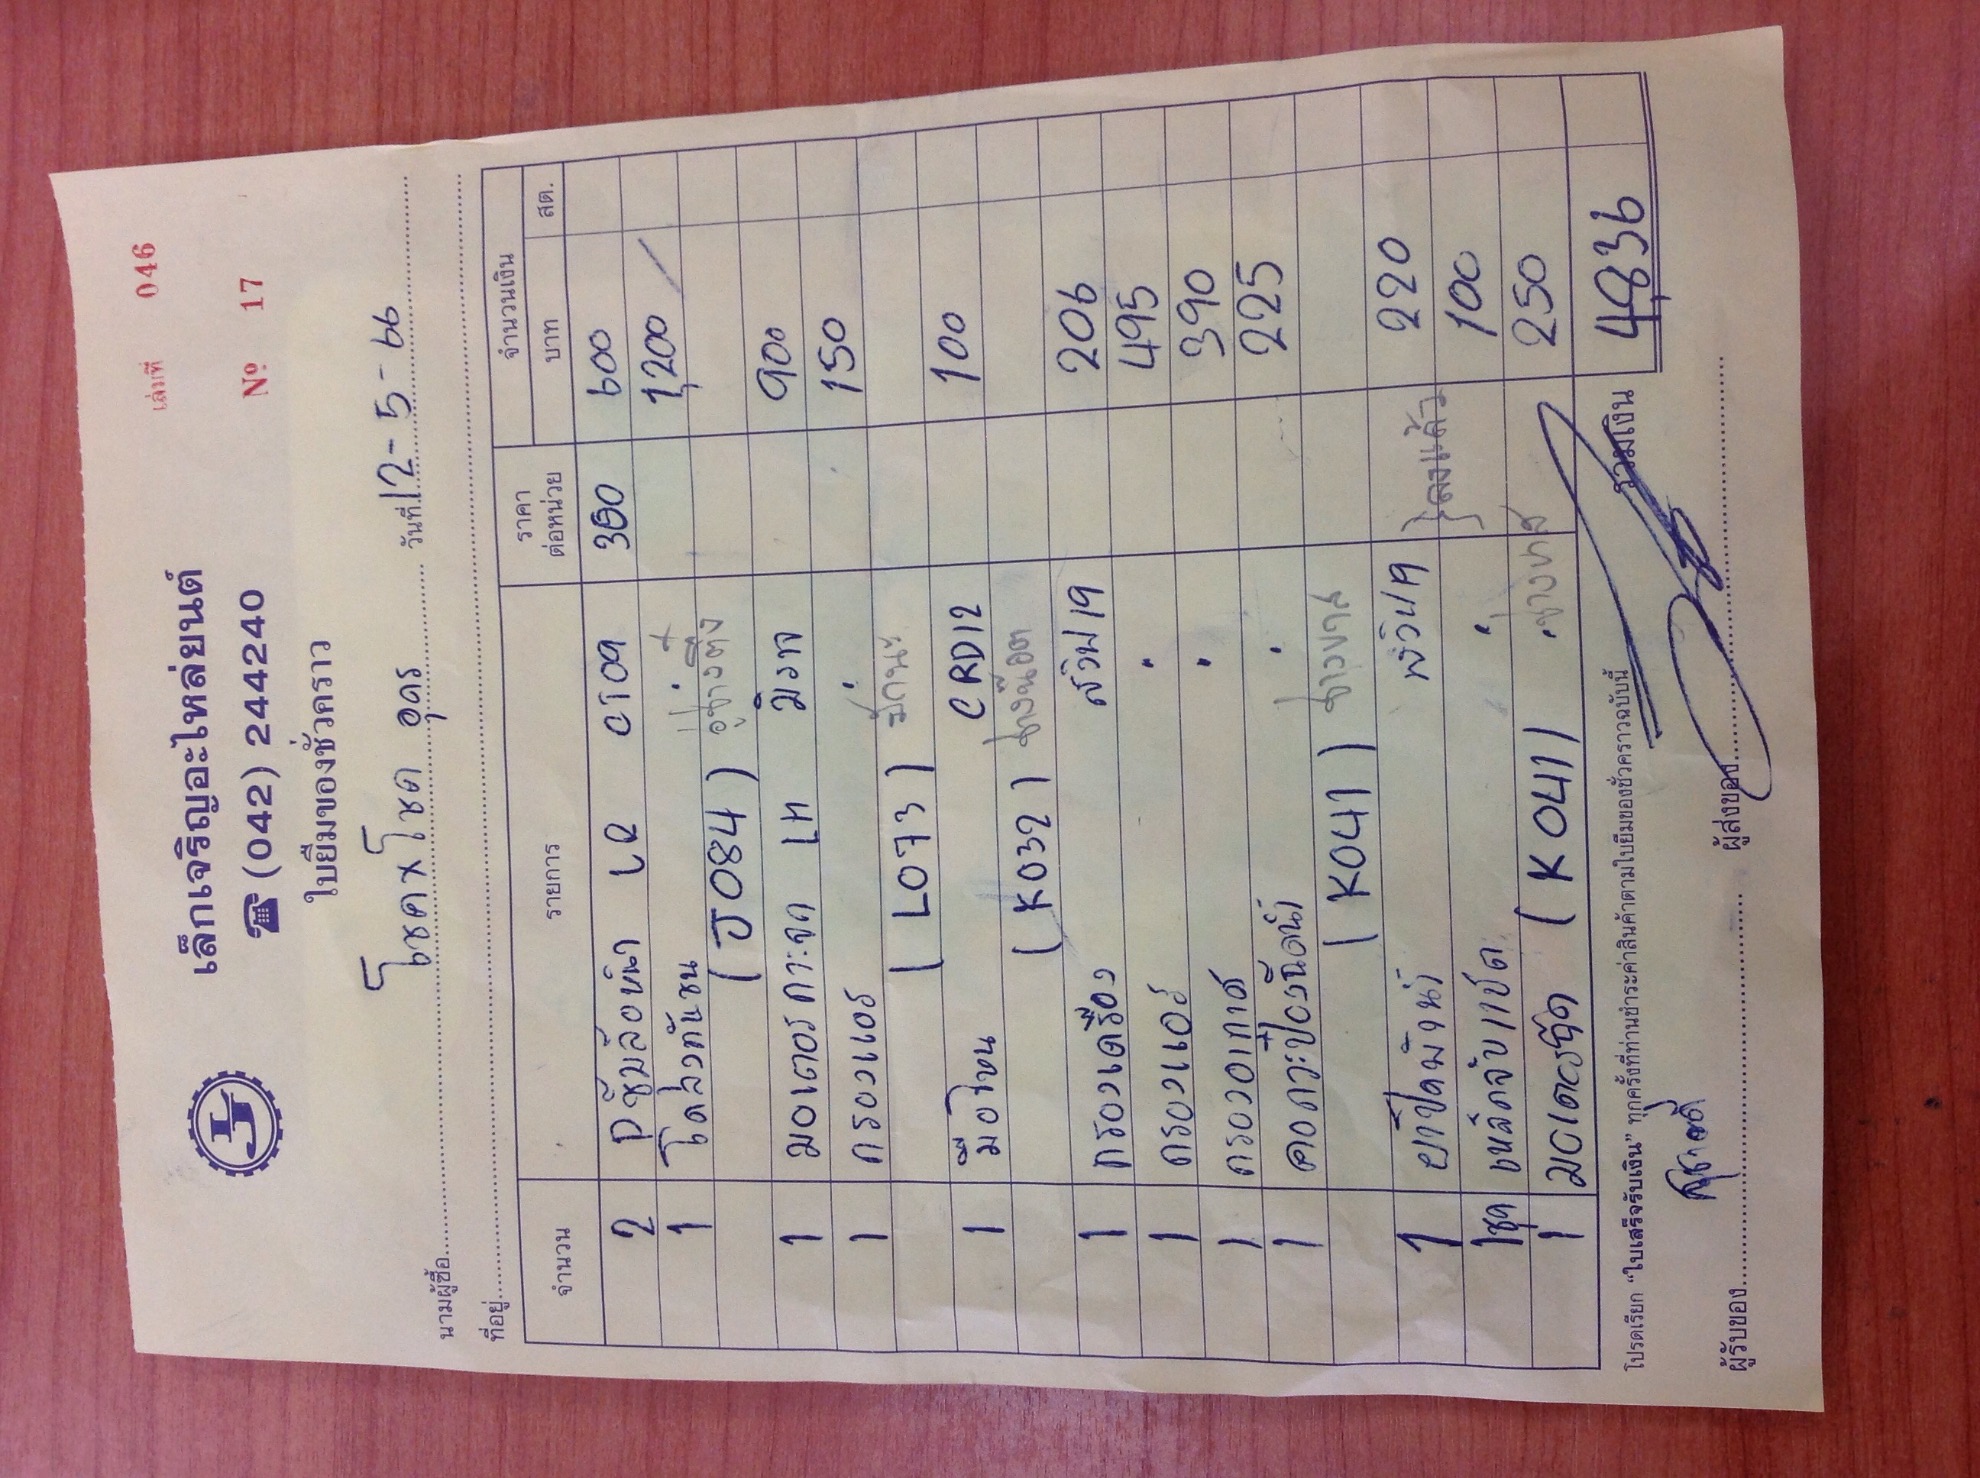 เล่มที่ 046
เล็กเจริญอะไหล่ยนต์
☎ (042) 244240 Nº 17
ใบยืมของชั่วคราว
นามผู้ซื้อ โชคxโชค อุดร วันที่ 12-5-66
ที่อยู่
จำนวน รายการ ราคาต่อหน่วย จำนวนเงิน
บาท สต.
2 ปชัมล้อหน้า LQ 300 600
1 โคล่งกันชน 1,200 /
(J084) อู่ช่างติ่ง
1 มอเตอร์กระจก LH มิราจ 900
1 กรองแอร์ 150
(L073)
1 มือโหน CRD12 100
(K032)
1 กรองเครื่อง 206
1 กรองแอร์ 495
1 กรองอากาศ 390
1 คอกระป๋องฉีดน้ำ 225
(K041) ช่างชาย
1 220
1ชุด 100
1 (K041) 250
รวมเงิน 4,836
โปรดเรียก "ใบเสร็จรับเงิน" ทุกครั้งที่ท่านชำระค่าสินค้าตามใบยืมของชั่วคราวฉบับนี้
ผู้รับของ ผู้ส่งของ